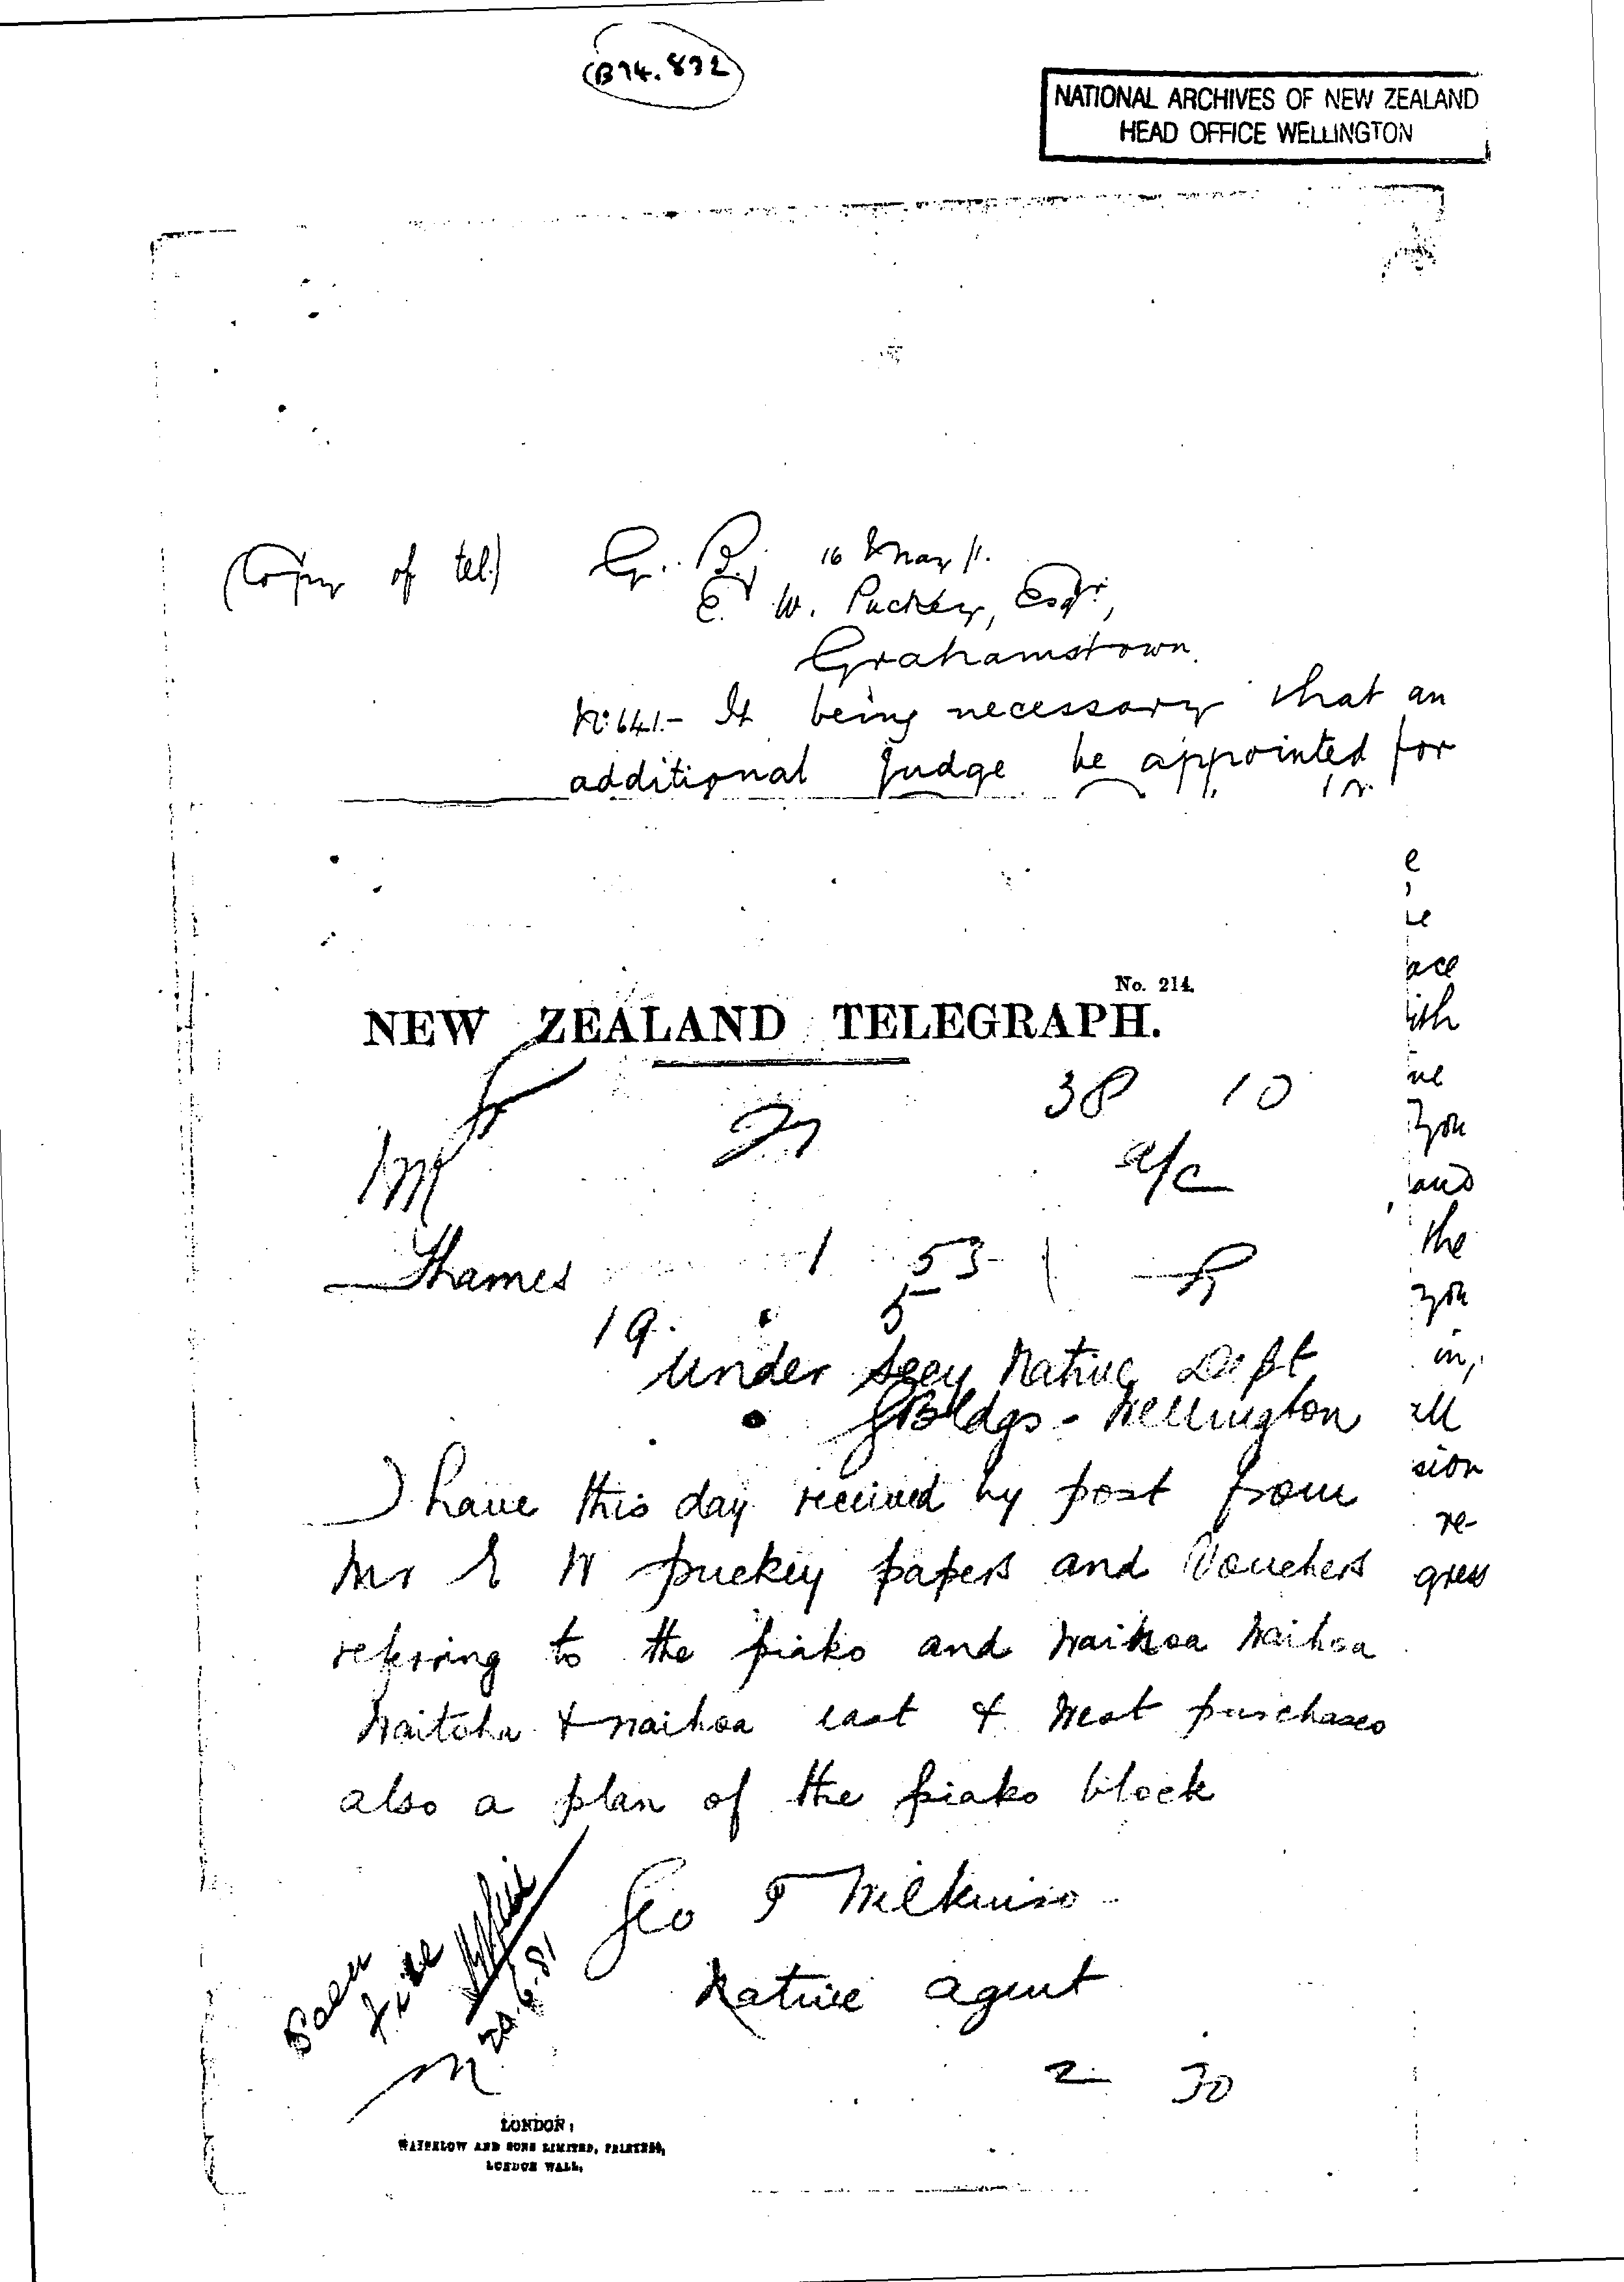 (B74.832)
NATIONAL ARCHIVES OF NEW ZEALAND
HEAD OFFICE WELLINGTON
(Copy of tel.) G. B; 16 May
E. W. Puckey, Esqr,
Grahamstown.
No 641.- It being necessary that an
additional Judge be appointed for
e
,
ace
ith
ne
you
and
the
you
in,
all
sion
re-
gress
No. 214.
NEW ZEALAND TELEGRAPH.
38 10
a/c
Thames 1 53
19. 5
Under Secy Native Dept
G Bldgs - Wellington
I have this day received by post from
Mr E W puckey papers and Vouchers
referring to the piako and Waihoa Waihoa
Waitoha & Waihoa east & West purchases
also a plan of the piako block
Geo T Wilkinso
Native agent
Seen
File
20.6.81
2 30
LONDON:
WATERLOW AND SONS LIMITED, PRINTERS,
LONDON WALL.